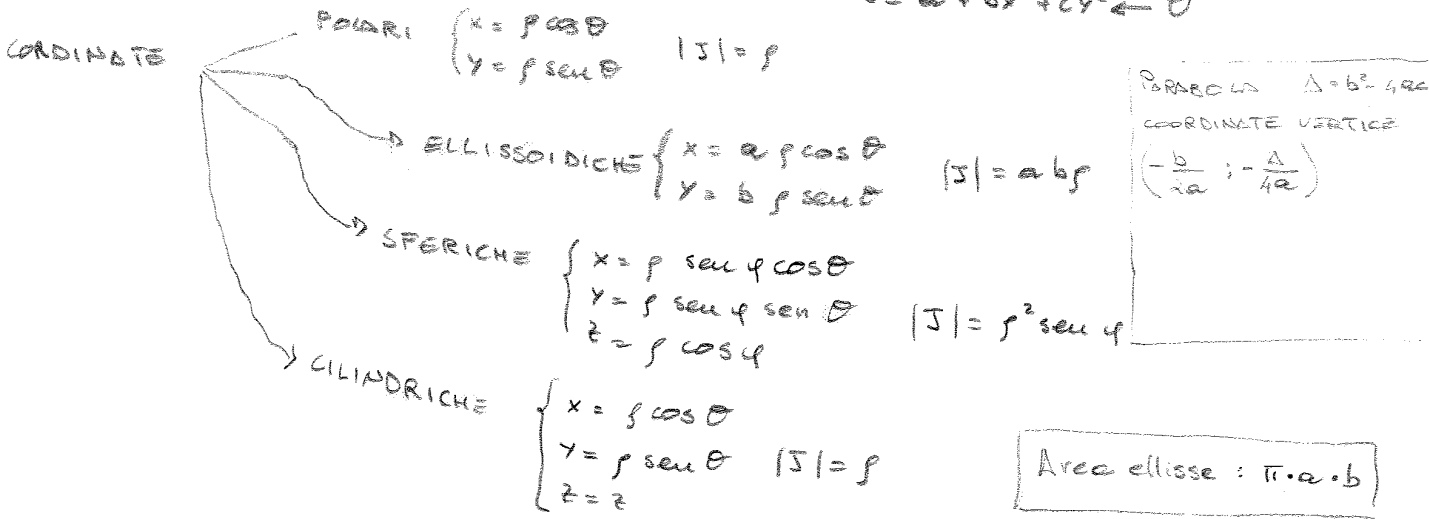 CORDINATE
POLARI { x = ρ cos θ
y = ρ sen θ |J| = ρ
ELLISSOIDICHE { x = a ρ cos θ
y = b ρ sen θ |J| = a b ρ
SFERICHE { x = ρ sen φ cos θ
y = ρ sen φ sen θ |J| = ρ² sen φ
z = ρ cos φ
CILINDRICHE { x = ρ cos θ
y = ρ sen θ |J| = ρ
z = z
PARABOLA Δ = b² - 4ac
COORDINATE VERTICE
(-b/2a ; -Δ/4a)
Area ellisse : π · a · b